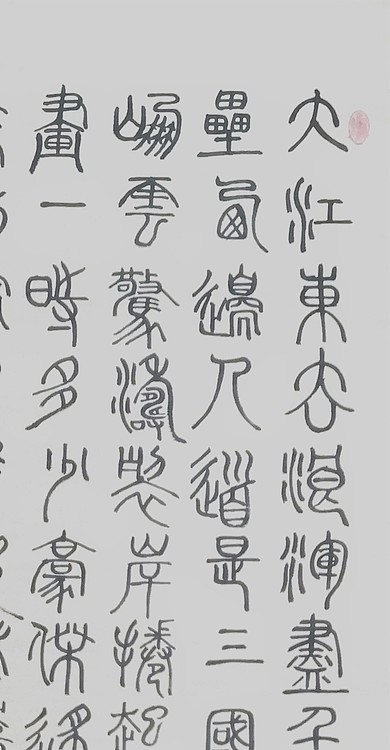 大江東去浪淘盡千
壘西邊人道是三國
崩雲驚濤裂岸捲起
畫一時多少豪傑遙